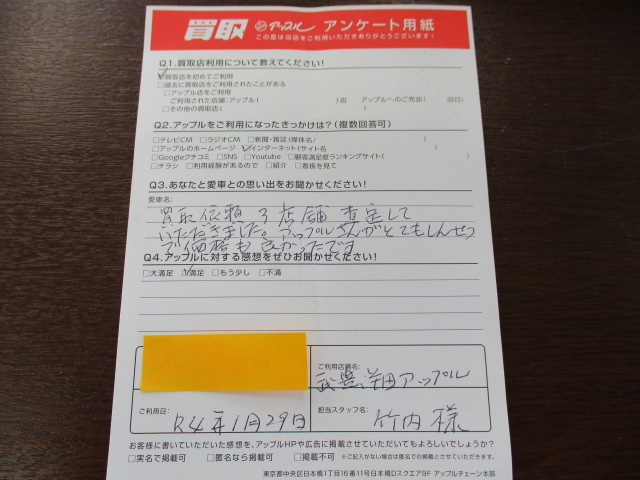 買取 アップル アンケート用紙
この度は当店をご利用いただきありがとうございます！
Q1.買取店利用について教えてください！
☑買取店を初めてご利用
□過去に買取店をご利用されたことがある
□アップル店をご利用
ご利用された店舗：アップル（ ）店 アップルへのご売却（ 回目）
□その他の買取店（ ）
Q2.アップルをご利用になったきっかけは？（複数回答可）
□テレビCM □ラジオCM □新聞・雑誌（媒体名/ ）
□アップルのホームページ ☑インターネット（サイト名 ）
□Googleクチコミ □SNS □Youtube □顧客満足度ランキングサイト（ ）
□チラシ □利用経験があるので □紹介 □看板を見て
Q3.あなたと愛車との思い出をお聞かせください！
愛車名：
買取依頼 3店舗 査定して
いただきました。アップルさんがとてもしんせつ
で価格も良かったです
Q4.アップルに対する感想をぜひお聞かせください！
□大満足 ☑満足 □もう少し □不満
ご利用店舗名：
アップル
ご利用日：
R4年1月29日
担当スタッフ名：
竹内様
お客様に書いていただいた感想を、アップルHPや広告に掲載させていただいてもよろしいでしょうか？
□実名で掲載可 □匿名なら掲載可 □掲載不可 ※ご記入がない場合は匿名での掲載とさせていただきます。
東京都中央区日本橋1丁目16番11号日本橋Dスクエア9F アップルチェーン本部